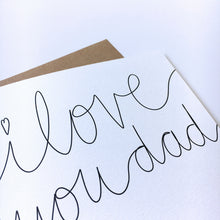 i love
you dad